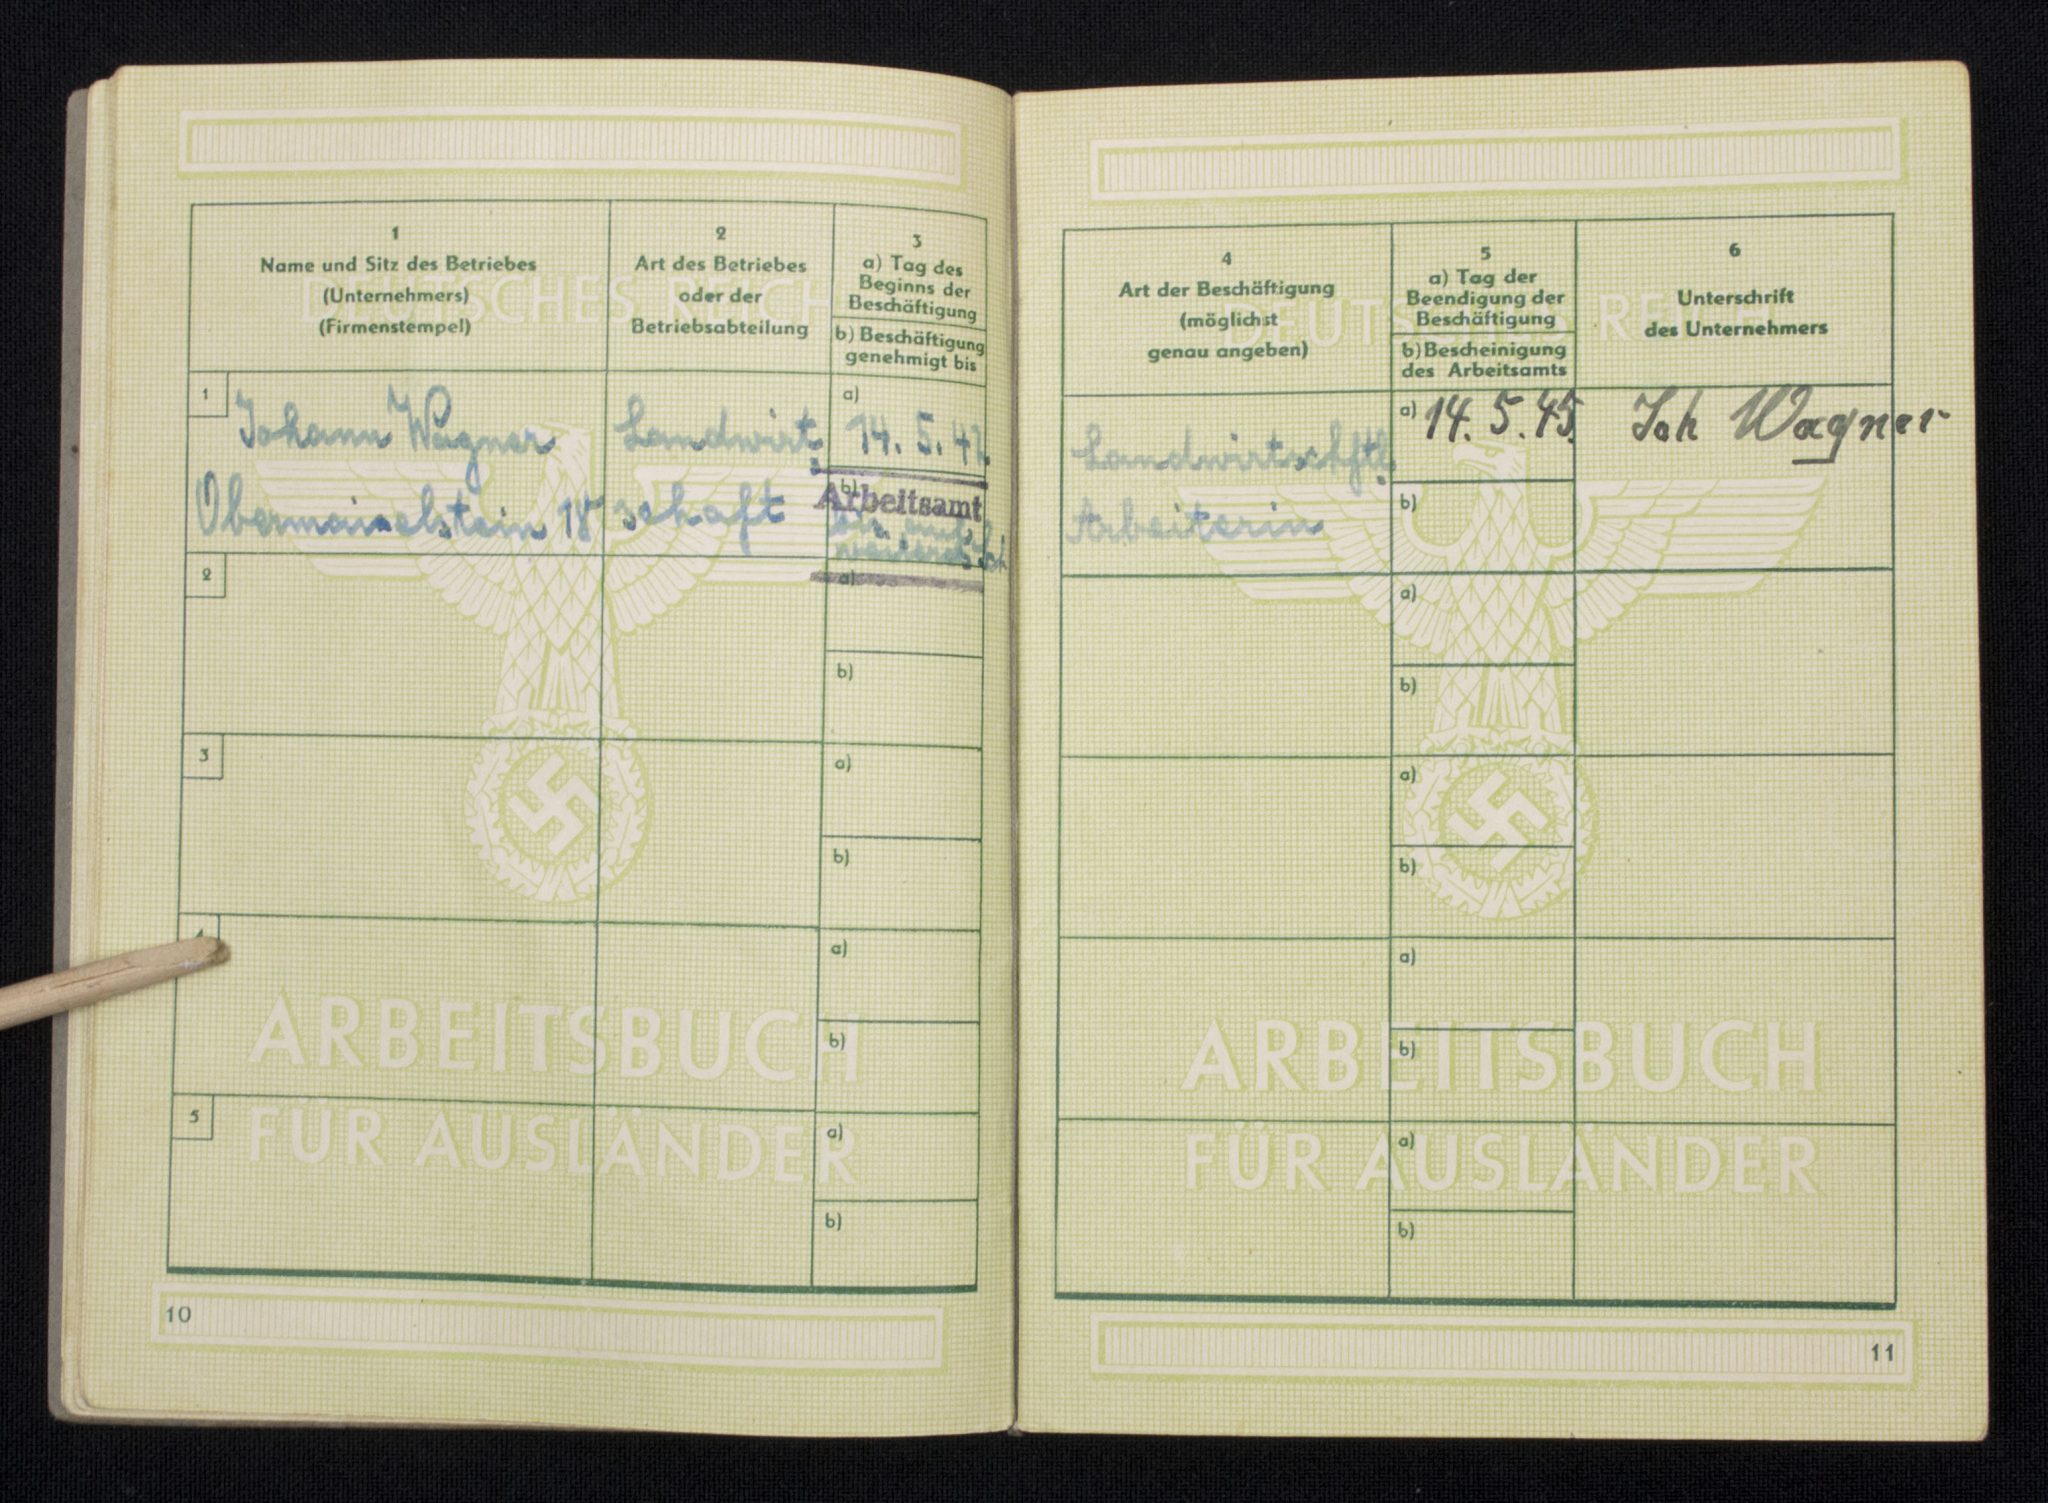 1
Name und Sitz des Betriebes
(Unternehmers)
(Firmenstempel)
2
Art des Betriebes
oder der
Betriebsabteilung
3
a) Tag des
Beginns der
Beschäftigung
b) Beschäftigung
genehmigt bis
1
Johann Wagner
Obermaiselstein 18
Landwirt
schaft
a)
14. 5. 42
b)
Arbeitsamt
bis auf
weiteres
2
a)
b)
3
a)
b)
4
a)
b)
5
a)
b)
DEUTSCHES REICH
ARBEITSBUCH
FÜR AUSLÄNDER
10
4
Art der Beschäftigung
(möglichst
genau angeben)
5
a) Tag der
Beendigung der
Beschäftigung
b) Bescheinigung
des Arbeitsamts
6
Unterschrift
des Unternehmers
Landwirtschftl.
Arbeiterin
a) 14. 5. 45.
Joh Wagner
b)
a)
b)
a)
b)
a)
b)
a)
b)
DEUTSCHES REICH
ARBEITSBUCH
FÜR AUSLÄNDER
11